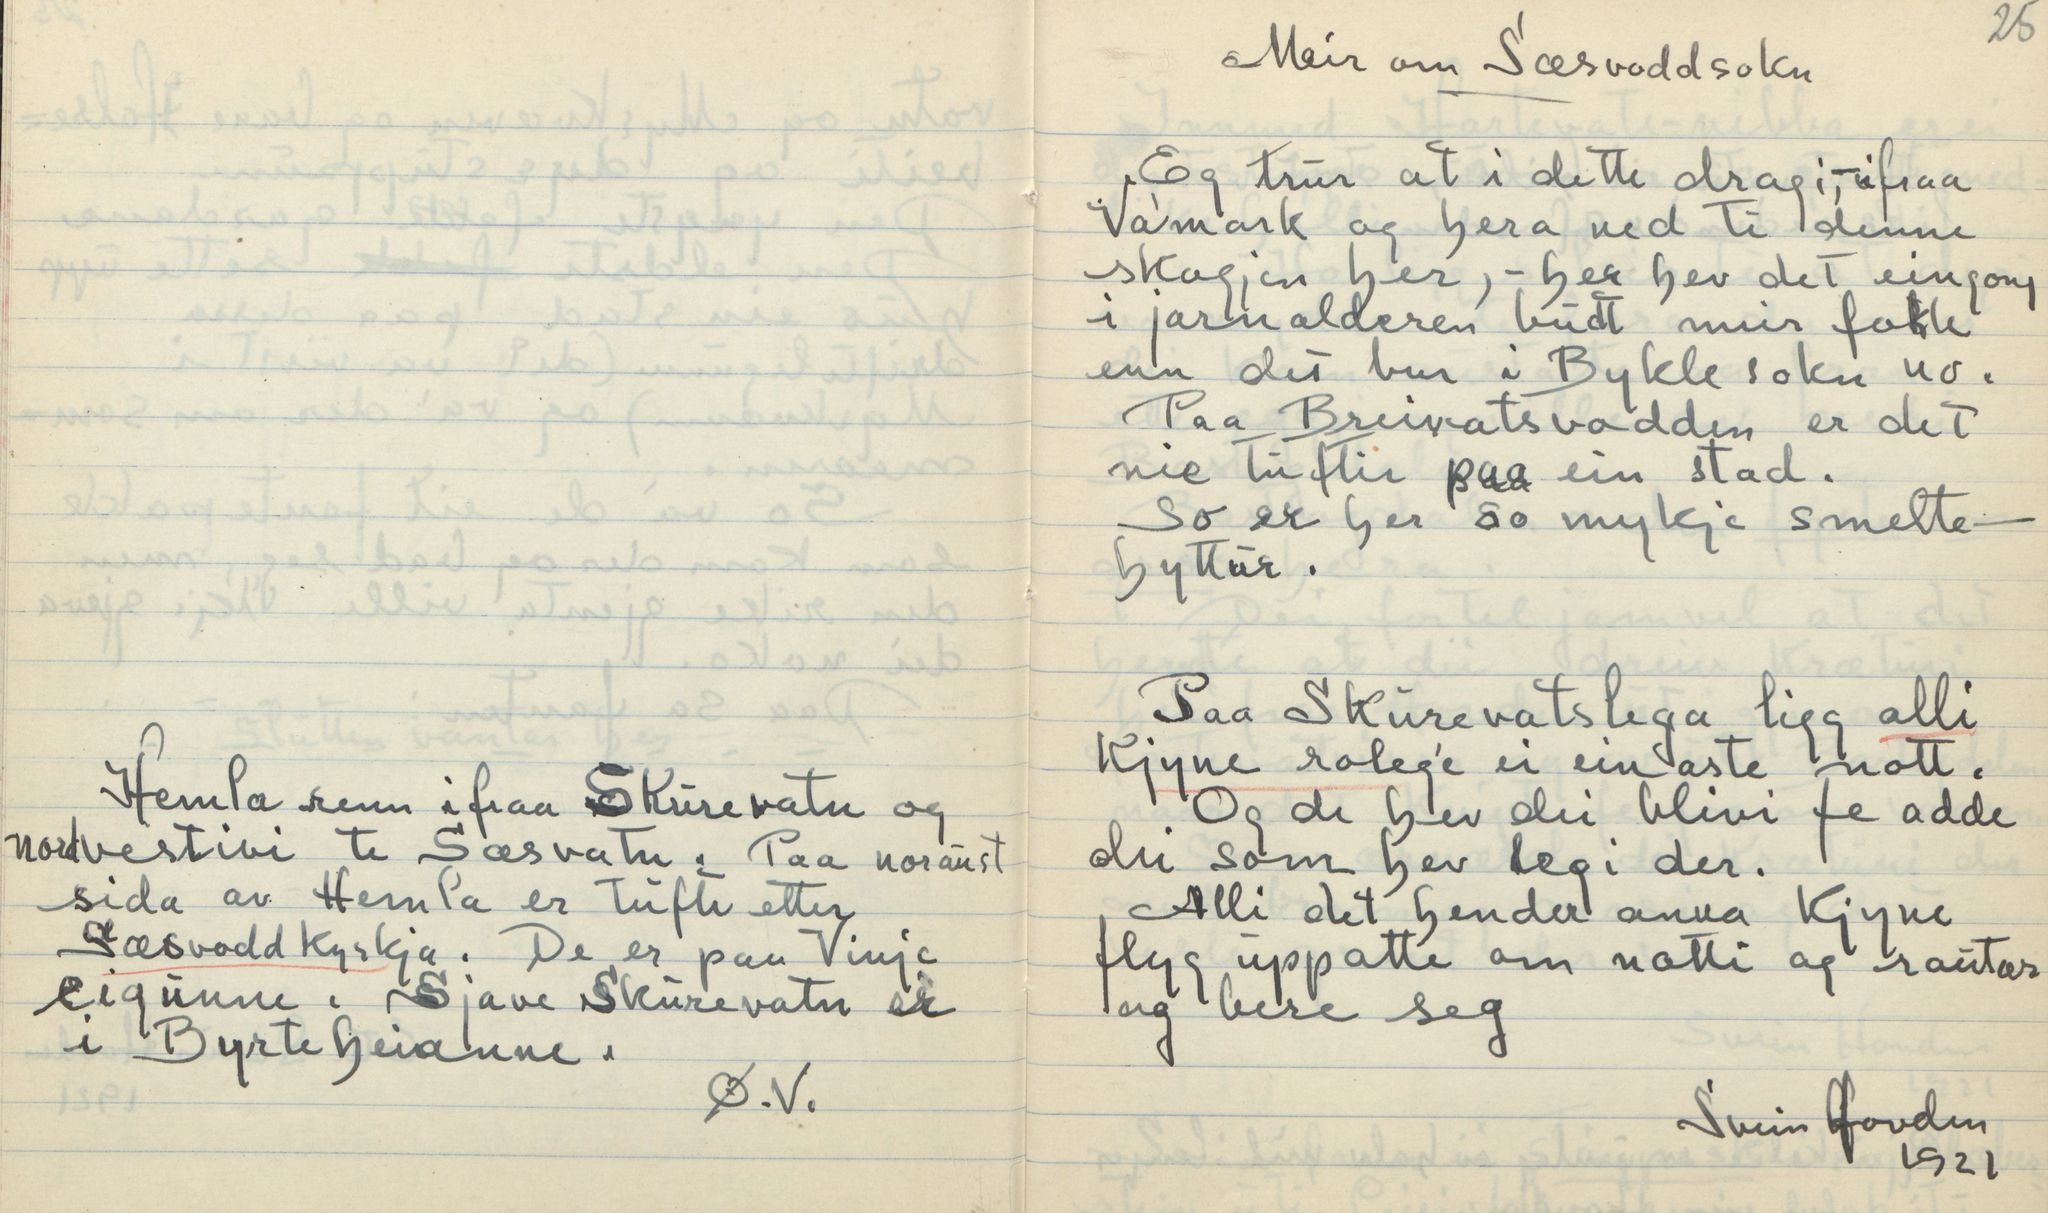 Hemla renn ifraa Skúrevatn og
nordvestivi te Sæsvatn. Paa noraust
sida av Hemla er tufte etter
Sæsvoddkyrkja. De er paa Vinje
eigunne. Sjave Skurevatn er
i Byrteheianne.
Ø.V.
25
Meir om Sæsvoddsokn
Eg trur at i dette dragi, - ifraa
Våmark og hera ned ti denne
skogjen her, - her hev det eingong
i jarnalderen budt meir folk
enn det bur i Byklesokn no.
Paa Breivatsvodden er det
nie tuftir paa ein stad.
So er her so mykje smelte-
hyttur.
Paa Skurevatslega ligg alli
Kjyne rolege ei einaste nott.
Og de hev dei blivi fe adde
dei som hev legi der.
Alli det hender anna Kjyne
flyg uppatte om notti og rautar
og bere seg
Svein Hovden
1921